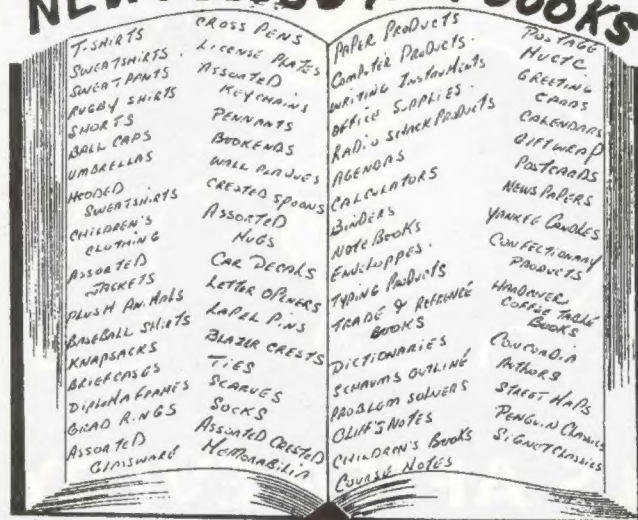 BOOKS
T-SHIRTS
SWEATSHIRTS
SWEAT PANTS
RUGBY SHIRTS
SHORTS
BALL CAPS
UMBRELLAS
HOODED
SWEATSHIRTS
CHILDREN'S
CLOTHING
ASSORTED
JACKETS
PLUSH ANIMALS
BASEBALL SHIRTS
KNAPSACKS
BRIEFCASES
DIPLOMA FRAMES
GRAD RINGS
ASSORTED
GLASSWARE
CROSS PENS
LICENSE PLATES
ASSORTED
KEYCHAINS
PENNANTS
BOOKENDS
WALL PLAQUES
CRESTED SPOONS
ASSORTED
MUGS
CAR DECALS
LETTER OPENERS
LAPEL PINS
BLAZER CRESTS
TIES
SCARVES
SOCKS
ASSORTED CRESTED
MEMORABILIA
PAPER PRODUCTS
COMPUTER PRODUCTS.
WRITING INSTRUMENTS
OFFICE SUPPLIES.
RADIO SHACK PRODUCTS
AGENDAS
CALCULATORS
BINDERS
NOTE BOOKS
ENVELOPPES.
TYPING PRODUCTS
TRADE & REFERENCE
BOOKS
DICTIONARIES
SCHAUMS OUTLINE
PROBLEM SOLVERS
CLIFF'S NOTES
CHILDREN'S BOOKS
COURSE NOTES
POSTAGE
GREETING
CARDS
CALENDARS
GIFTWRAP
POSTCARDS
NEWSPAPERS
YANKEE CANDLES
CONFECTIONARY
PRODUCTS
HARDCOVER
COFFEE TABLE
BOOKS
CONCORDIA
AUTHORS
STREET MAPS
PENGUIN CLASSICS
SIGNET CLASSICS